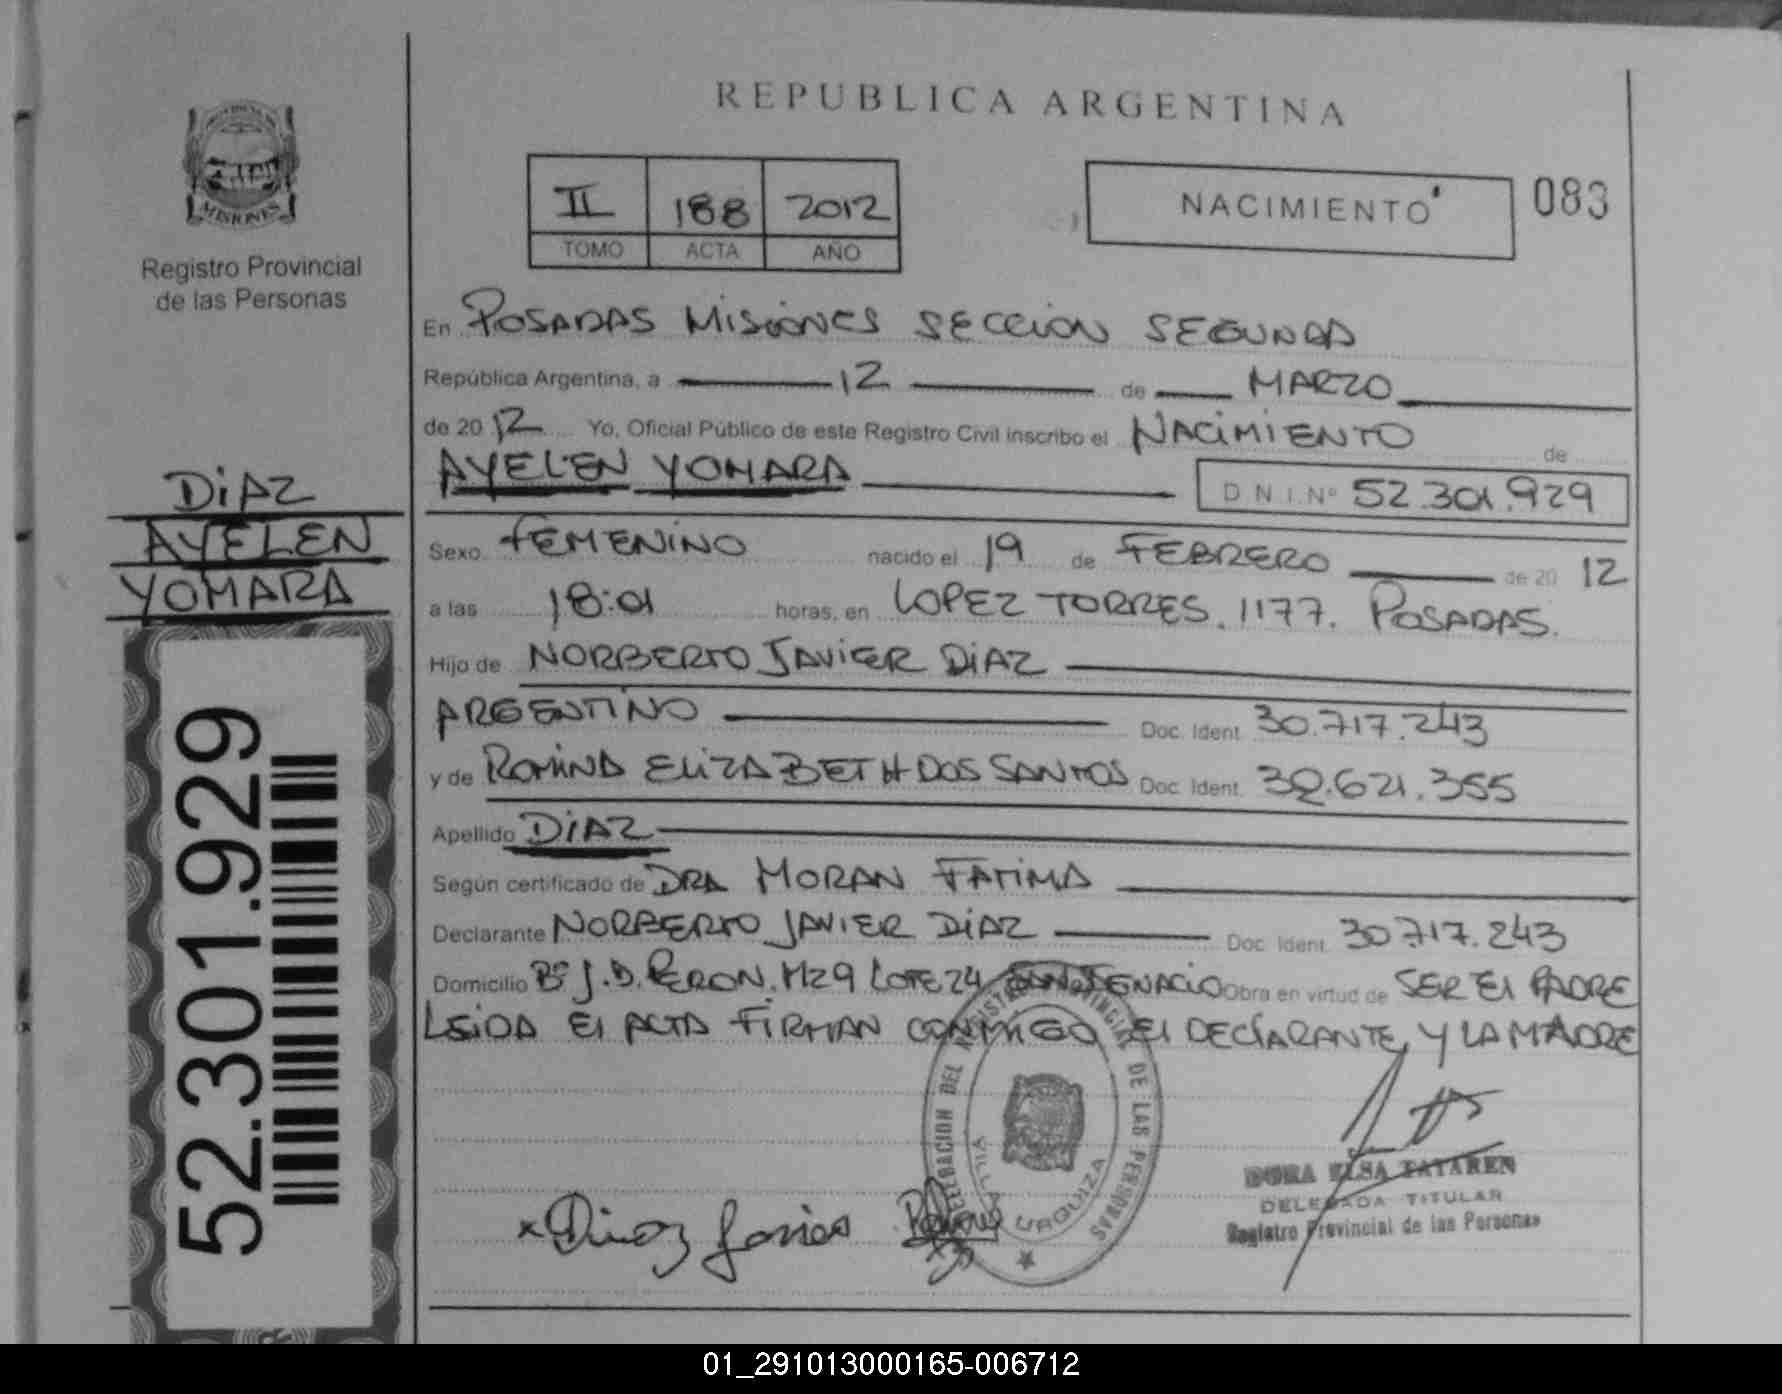 REPUBLICA ARGENTINA
MISIONES
Registro Provincial
de las Personas
II 188 2012
TOMO ACTA AÑO
NACIMIENTO
083
En POSADAS MISIONES SECCION SEGUNDA
República Argentina, a 12 de MARZO
de 2012 Yo, Oficial Público de este Registro Civil inscribo el NACIMIENTO de
AYELEN YOMARA D.N.I. Nº 52.301.929
DIAZ
AYELEN
YOMARA
Sexo FEMENINO nacido el 19 de FEBRERO de 20 12
a las 18:01 horas, en LOPEZ TORRES. 1177. POSADAS.
Hijo de NORBERTO JAVIER DIAZ
ARGENTINO Doc. Ident. 30.717.243
y de ROMINA ELIZABETH DOS SANTOS Doc. Ident. 32.621.355
Apellido DIAZ
Según certificado de DRA MORAN FATIMA
Declarante NORBERTO JAVIER DIAZ Doc. Ident. 30.717.243
Domicilio Bº J.D. PERON. MZ9 LOTE 24 SAN IGNACIO Obra en virtud de SER El PADRE
LEIDA El ACTA FIRMAN CONMIGO El DEClARANTE Y LA MADRE
52.301.929
DEL REGISTRO PROVINCIAL DE LAS PERSONAS
VILLA URQUIZA
Diaz Javier
DORA ELSA TATAREN
DELEGADA TITULAR
Registro Provincial de las Personas
01_291013000165-006712